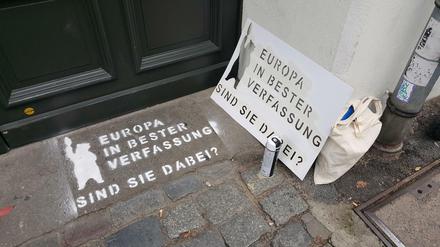 EUROPA
IN BESTER
VERFASSUNG
SIND SIE DABEI?
EUROPA
IN BESTER
VERFASSUNG
SIND SIE DABEI?